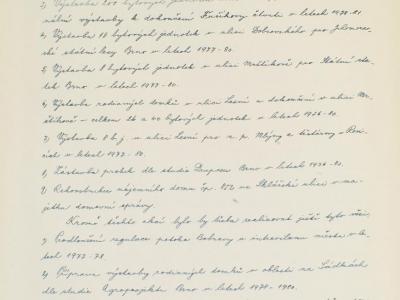 2) Výstavba 200 bytových jednotek
nční výstavby k dokončení Fučíkovy čtvrti v letech 1978-81.
3) Výstavba 18 bytových jednotek v ulici Dobrovského pro Jihomo-
ravské státní lesy Brno v letech 1977-80.
5) Výstavba 8 bytových jednotek v ulici pro Státní sta-
tek Brno v letech 1977-80.
6) Výstavba rodinných domků v ulici Lesní a dokončení v ulici
v celkem 26 a 40 bytových jednotek v letech 1976-80.
7) Výstavba 8 b.j. v ulici Lesní pro n. p. Mlýny a těstárny v
v letech 1977-80.
8) Zástavba prolek dle studie Drupos Brno v letech 1976-80.
9) Rekonstrukce nájemního domu čp. 852 ve Sklářské ulici v ma-
jetku domovní správy.
Kromě těchto akcí bylo by třeba realizovat ještě tyto věci:
1) Prodloužení regulace potoka Bobravy v intravilánu města v le-
tech 1977-78.
2) Příprava výstavby rodinných domků v oblasti na Sádkách
dle studie Agroprojektu Brno v letech 1979-1980.